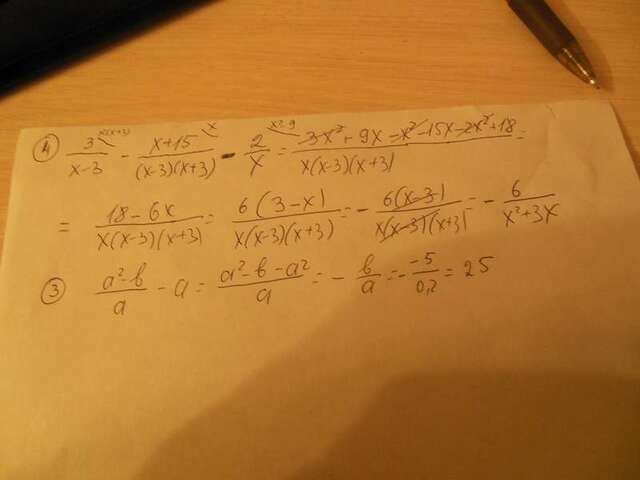 ④ 3/(x-3) ^x(x+3) - (x+15)/((x-3)(x+3)) ^x - 2/x ^x²-9 = (3x²+9x-x²-15x-2x²+18)/(x(x-3)(x+3)) =
= (18-6x)/(x(x-3)(x+3)) = 6(3-x)/(x(x-3)(x+3)) = - 6(x-3)/(x(x-3)(x+3)) = - 6/(x²+3x)
③ (a²-b)/a - a = (a²-b-a²)/a = - b/a = - -5/0,2 = 25